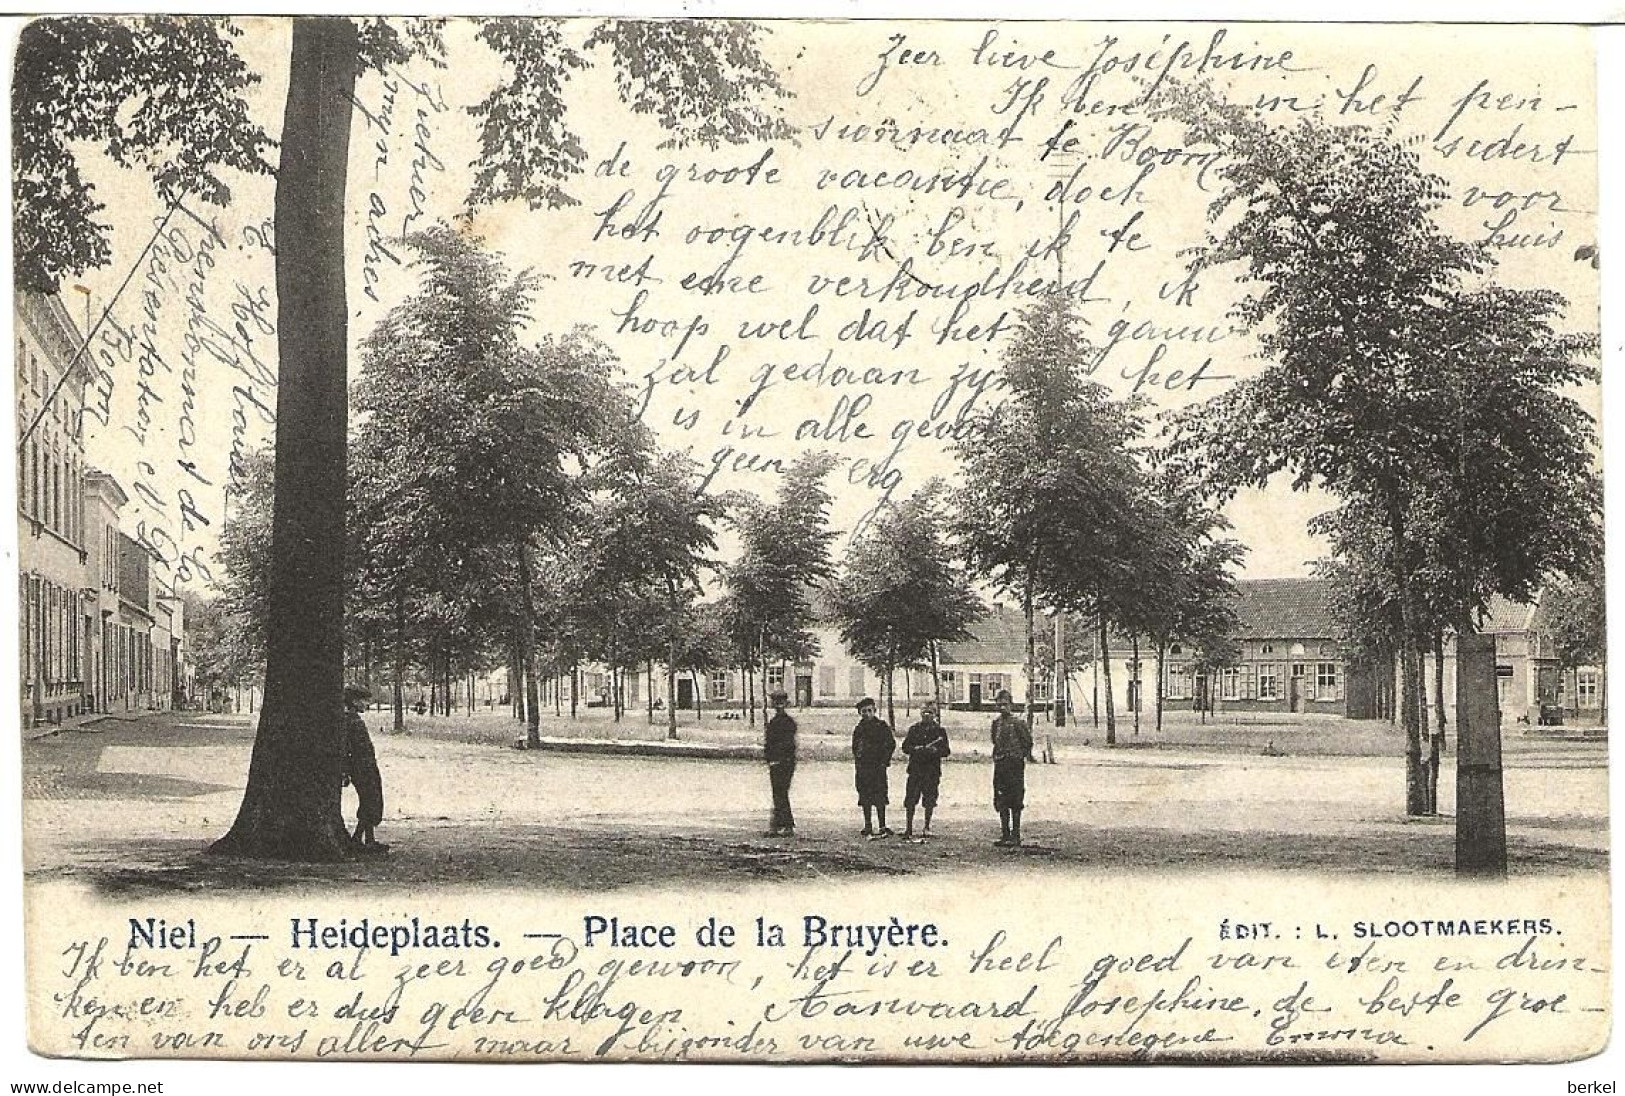 Zeer lieve Joséphine
Ik ben in het pen-
sionnaat te Boom sedert
de groote vacantie, doch voor
het oogenblik ben ik te huis
met eene verkoudheid, ik
hoop wel dat het gauw
zal gedaan zijn het
is in alle geval
geen erg
Ziehier
mijn adres
E. Hofstouwe
pensionnaat de la
Présentation N.D.
Boom
Niel. — Heideplaats. — Place de la Bruyère.
ÉDIT. : L. SLOOTMAEKERS.
Ik ben het er al zeer goed gewoon, het is er heel goed van eten en drin-
ken en heb er dus geen klagen. Aanvaard Josephine, de beste groe-
ten van ons allen, maar bijzonder van uwe toegenegene Emma.
www.delcampe.net
berkel